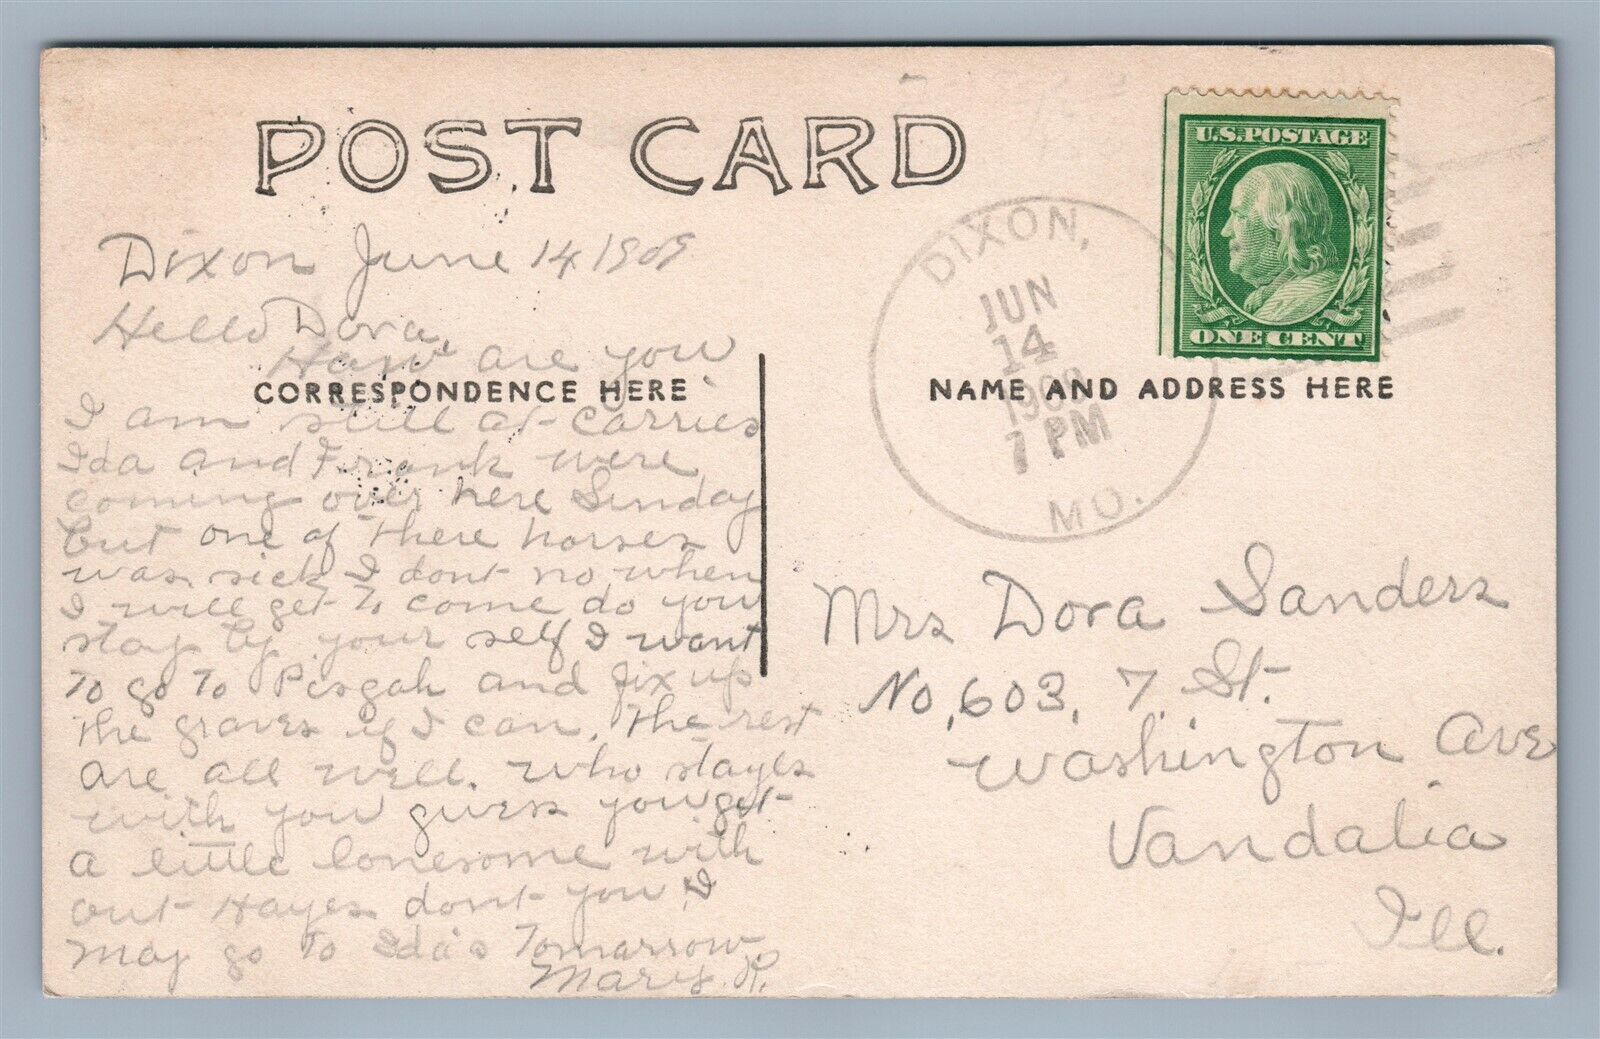 POST CARD
U.S. POSTAGE
ONE CENT
DIXON,
JUN
14
1909
7 PM
MO.
Dixon June 14 1909
Hello Dora,
How are you
CORRESPONDENCE HERE
NAME AND ADDRESS HERE
I am still at Carries
Ida and Frank were
coming over here Sunday
but one of there horses
was sick I dont no when
I will get to come do you
stay by your self I want
To go To Pisgah and fix up
the graves if I can. The rest
are all well. who stayes
with you guess you get
a little lonesome with
out Hayes dont you I
may go To Ida's Tomarrow.
Mary. R.
Mrs Dora Sanders
No, 603, 7 St.
Washington Ave
Vandalia
Ill.